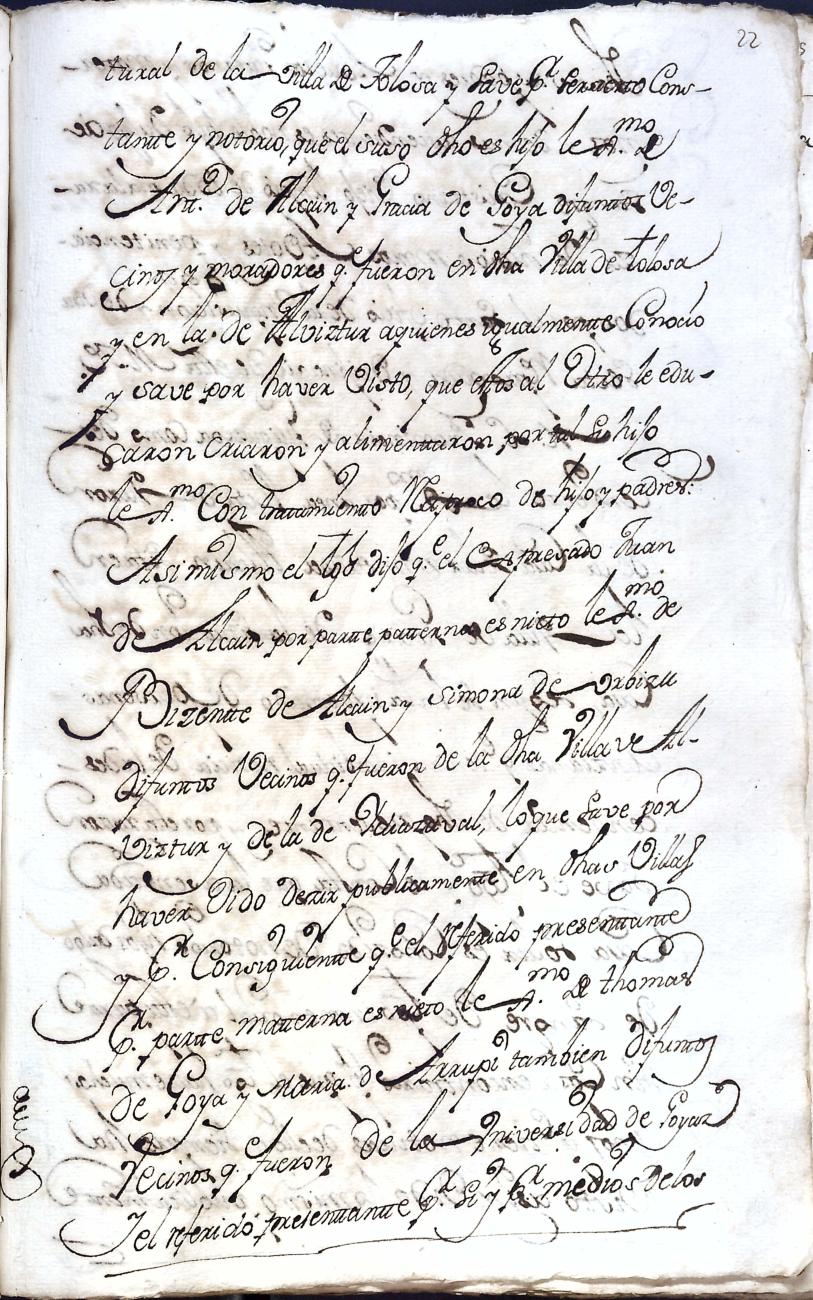 22
tural de la villa de Tolosa y save pr. ser cierto Cons-
tante y notorio, que el suso dho es hijo lexmo. de
Antt.o de Alcain y Gracia de Goya difuntos Ve-
cinos y moradores q.e fueron en dha Villa de tolosa
y en la de Alviztur aquienes igualmente Conocio
y save por haver Visto, que estos al Otro le edu-
caron criaron y alimentaron por tal su hijo
lexmo. Con tratamiento Reciproco de hijo y padres.
Asi mismo el tgo dijo q.e el expresado Juan
de Alcain por parte patterna es nieto lexmo. de
Bizente de Alcain y Simona de Orbizu
difuntos Vecinos q.e fueron de la dha Villa de Al-
viztur y de la de Ydiazaval, lo que save por
haver oido dezir publicamente en dhas Villas
y pr. Consiguiente q.e el referido presentante
pr. parte matterna es nieto lexmo. de thomas
de Goya y Maria de Arrupi tambien difuntos
Vecinos q.e fueron de la Vniversidad de Goyaz
y el referido presentante pr. si y pr. medios de los